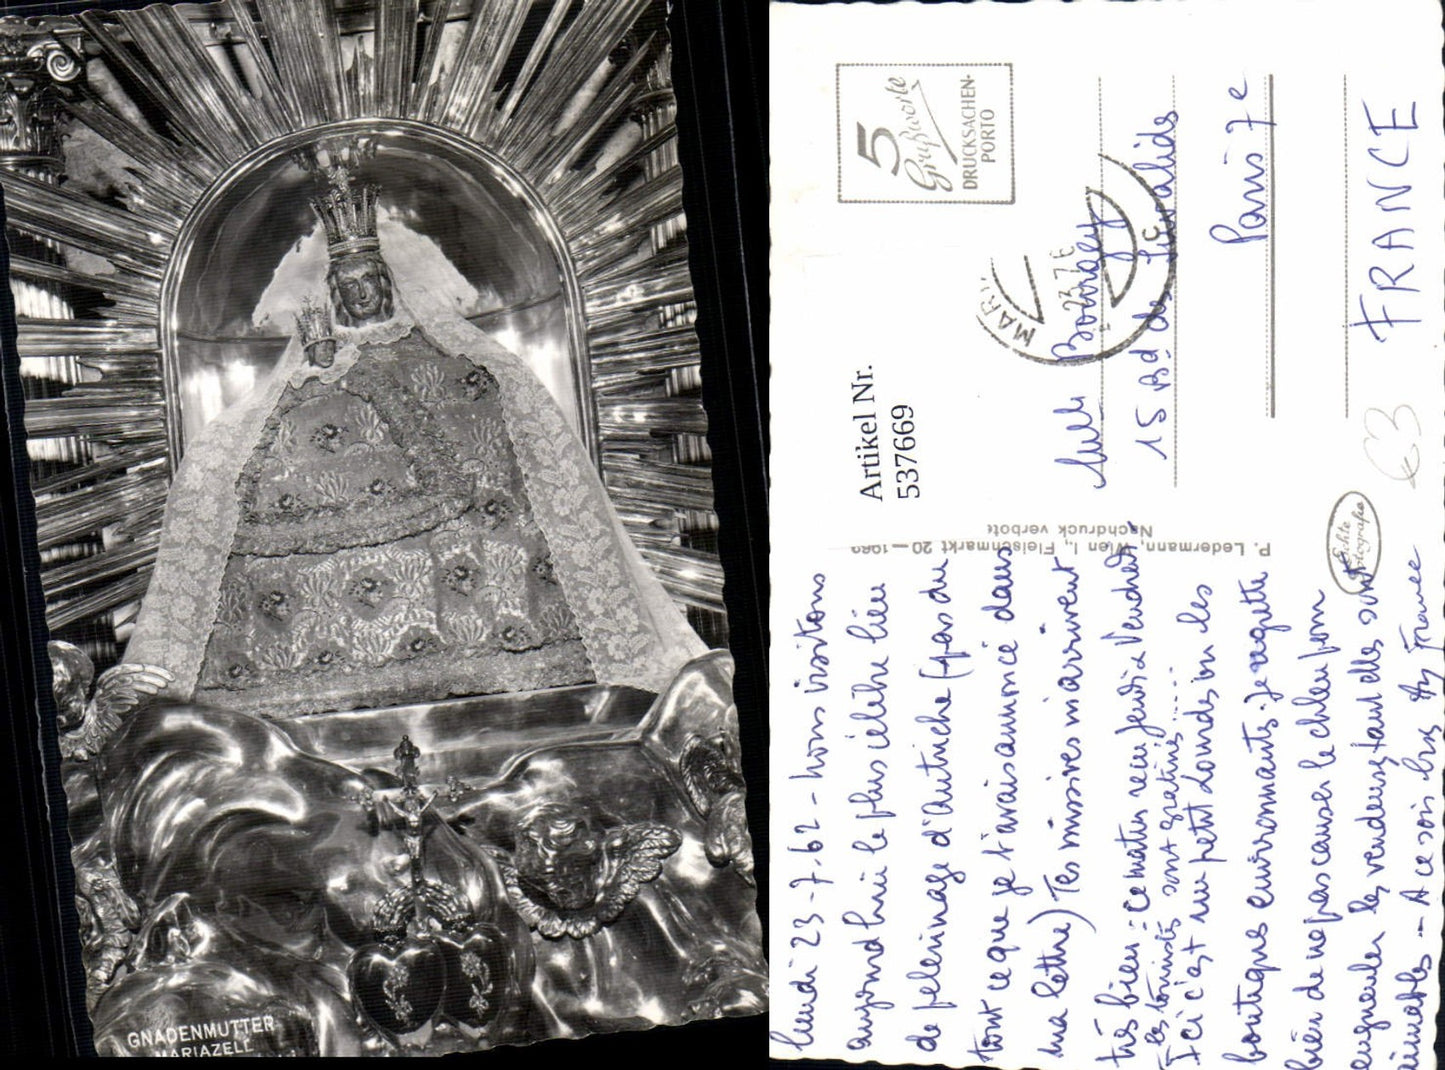 GNADENMUTTER
MARIAZELL
5
Grußworte
DRUCKSACHEN-
PORTO
MARI
Artikel Nr.
537669
15 Bd des Invalides
Paris 7e
FRANCE
€3
P. Ledermann, Wien I., Fleischmarkt 20 — 1969
Nachdruck verboten
Echte
Fotografie
Lundi 23-7-62 - Nous visitons
aujourd'hui le plus célèbre lieu
de pèlerinage d'Autriche (pas du
tout ce que je t'avais annoncé dans
ma lettre) Tes missives m'arrivent
très bien : ce matin reçu Jeudi & Vendredi
Les touristes sont gratinés.....
Ici c'est un petit Lourdes vu les
boutiques environnants. Je regrette
bien de ne pas causer le chleu pour
engueuler les vendeuses tant elles sont
aimables -- A ce soir